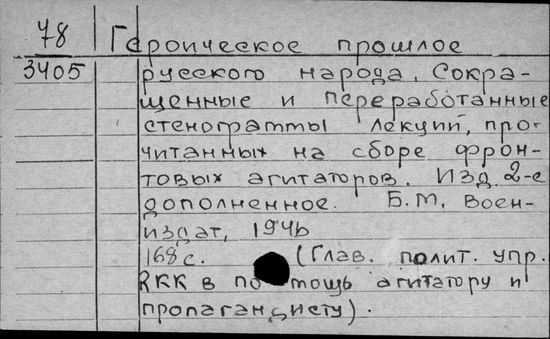 78 Героическое прошлое
3405 русского народа. Сокра-
щенные и переработанные
стенограммы лекций, про-
читанных на сборе фрон-
товых агитаторов. Изд. 2-е
дополненное. Б.М, Воен-
издат, 1946
168с. (Глав. полит. упр.
RKK в помощь агитатору и
пропагандисту).